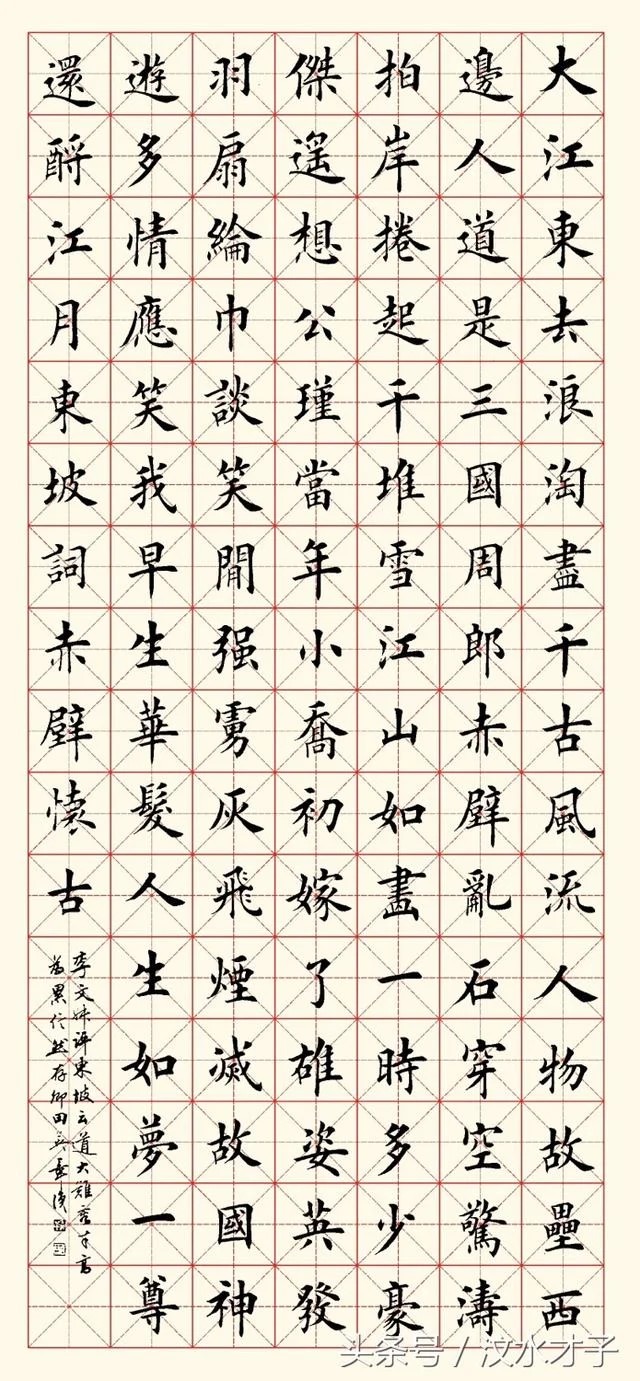 大江東去浪淘盡千古風流人物故壘西
邊人道是三國周郎赤壁亂石穿空驚濤
拍岸捲起千堆雪江山如畫一時多少豪
傑遙想公瑾當年小喬初嫁了雄姿英發
羽扇綸巾談笑閒强虜灰飛煙滅故國神
遊多情應笑我早生華髮人生如夢一尊
還酹江月東坡詞赤壁懷古
李文評東坡云道大難容才高
為累信然存卿田英章
头条号/汶水才子